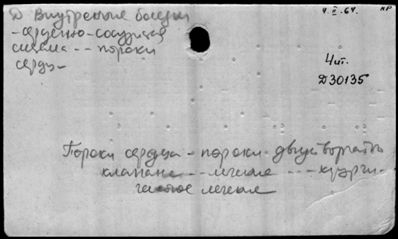 Д Внутренние болезни
- сердечно-сосудистая
система -- пороки
сердца
4.II.64.
НР
Чит.
Д30135
Пороки сердца - пороки двустворчатого
клапана -- лечение --- хирурги-
ческое лечение